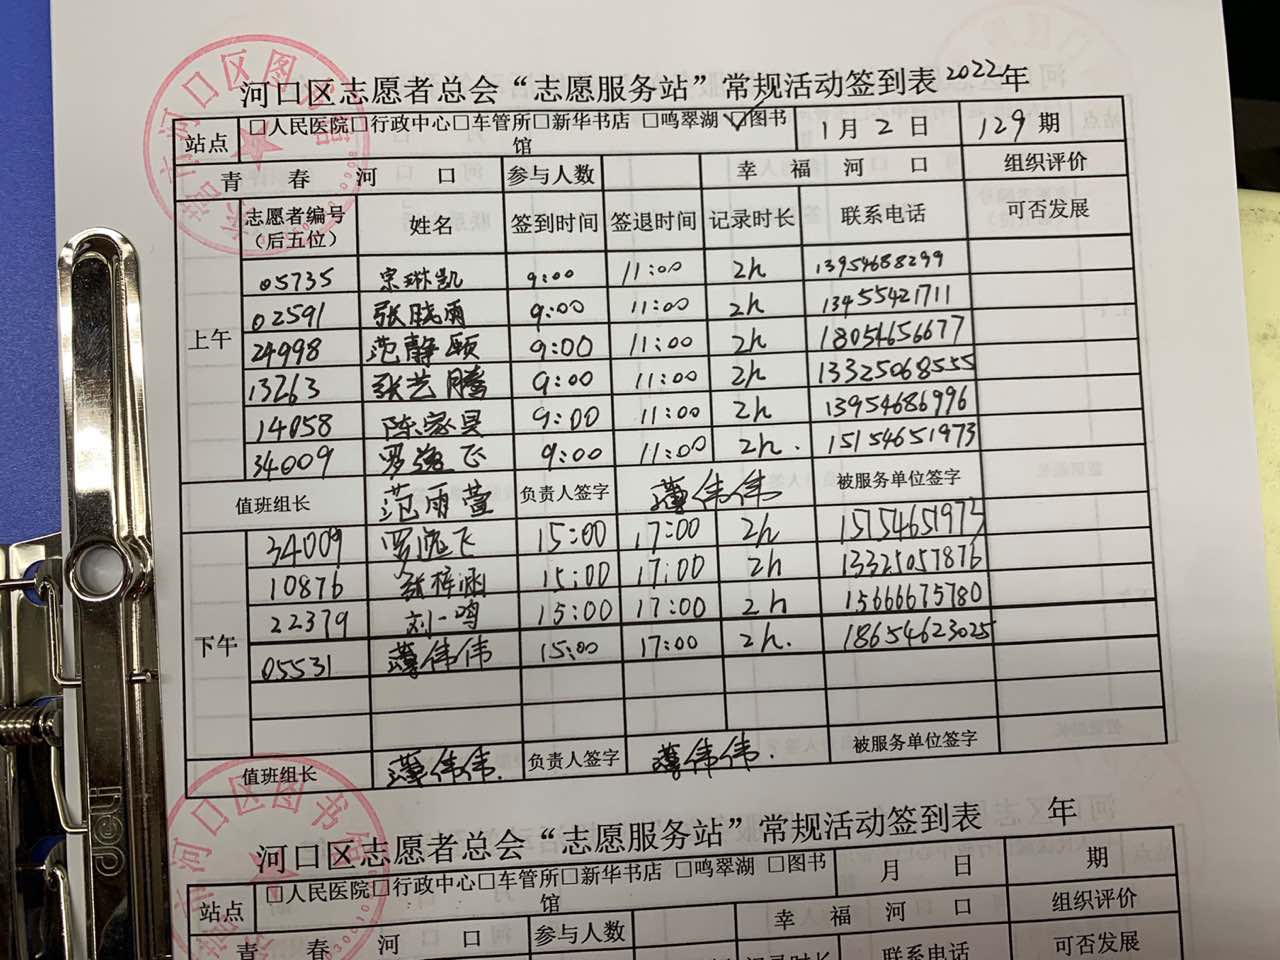 河口区志愿者总会“志愿服务站”常规活动签到表 2022年
站点 □人民医院□行政中心□车管所□新华书店 □鸣翠湖 ☑图书馆 1月2日 129期
青春河口 参与人数 幸福河口 组织评价
志愿者编号（后五位） 姓名 签到时间 签退时间 记录时长 联系电话 可否发展
上午
05735 宗琳凯 9:00 11:00 2h 13954688299
02591 张晓雨 9:00 11:00 2h 13455421711
24998 范静颐 9:00 11:00 2h 18054656677
13263 张艺腾 9:00 11:00 2h 13325068555
14058 陈家昊 9:00 11:00 2h 13954686996
34009 罗逸飞 9:00 11:00 2h. 15154651973
值班组长 范雨萱 负责人签字 薄伟伟 被服务单位签字
下午
34009 罗逸飞 15:00 17:00 2h 15154651973
10876 张梓涵 15:00 17:00 2h 13325057876
22379 刘一鸣 15:00 17:00 2h 15666675780
05531 薄伟伟 15:00 17:00 2h. 18654623025
值班组长 薄伟伟. 负责人签字 薄伟伟. 被服务单位签字
河口区志愿者总会“志愿服务站”常规活动签到表 年
站点 □人民医院□行政中心□车管所□新华书店 □鸣翠湖 □图书馆 月 日 期
青春河口 参与人数 幸福河口 组织评价
记录时长 联系电话 可否发展
河口区图书馆
河口区图书馆
deli